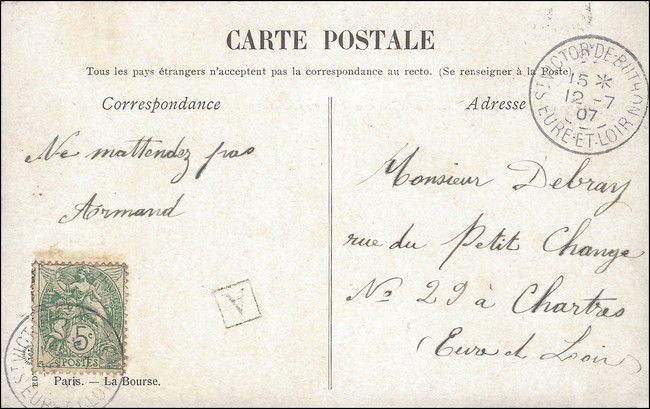 CARTE POSTALE
Tous les pays étrangers n'acceptent pas la correspondance au recto. (Se renseigner à la Poste)
Correspondance
Adresse
ST VICTOR-DE-BUTHON
15 *
12 -7
07
EURE-ET-LOIR
Ne mattendez pas
Armand
Monsieur Debray
rue du Petit Change
No 29 à Chartres
(Eure et Loir)
A
5c
POSTES
ST VICTOR
EURE-ET-LOIR
ED
Paris. — La Bourse.